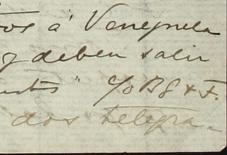 os á Venezuela
y deben salir
c/o B J & F.
dos telegra-